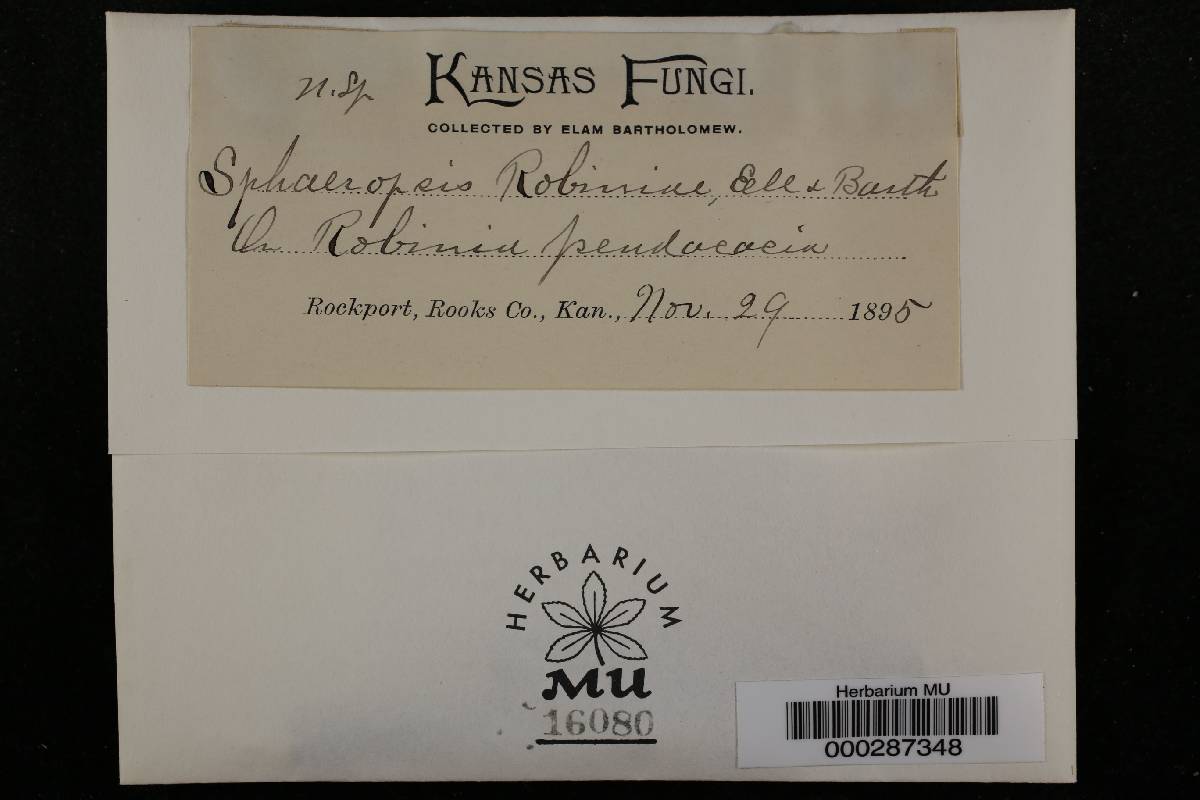 n. Sp
KANSAS FUNGI.
COLLECTED BY ELAM BARTHOLOMEW.
Sphaeropsis Robiniae, Ell & Barth
On Robinia pseudacacia
Rockport, Rooks Co., Kan., Nov. 29 1895
HERBARIUM
MU
16080
Herbarium MU
000287348